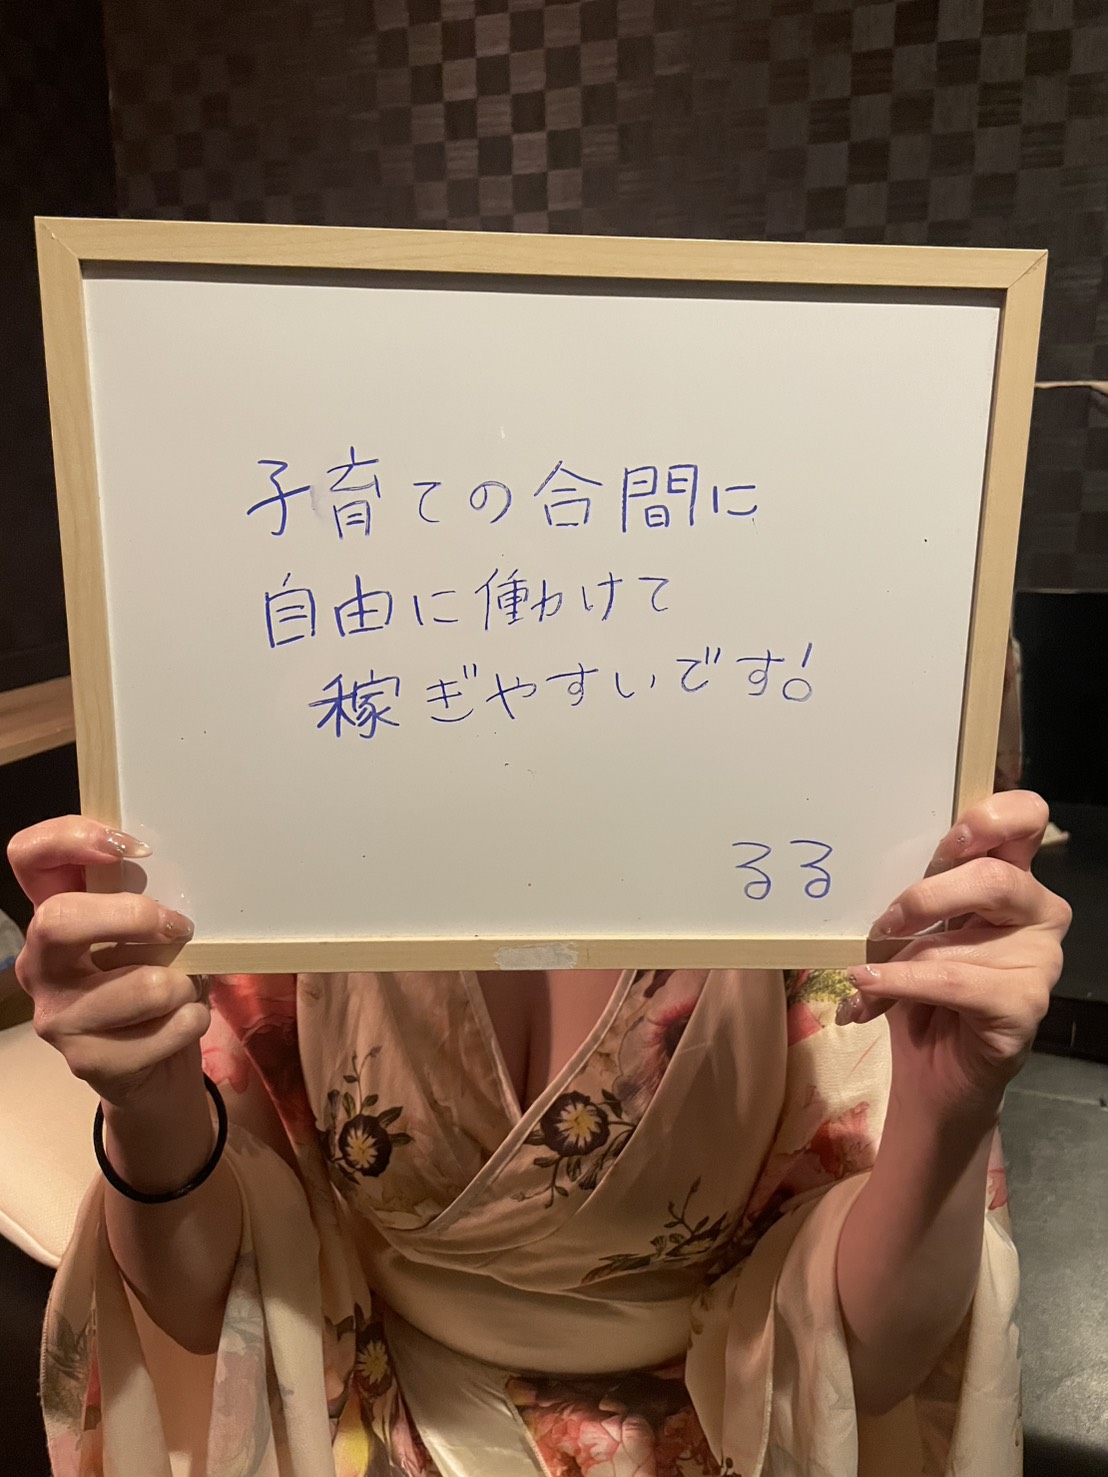 子育ての合間に
自由に働かけて
稼ぎやすいです!
るる